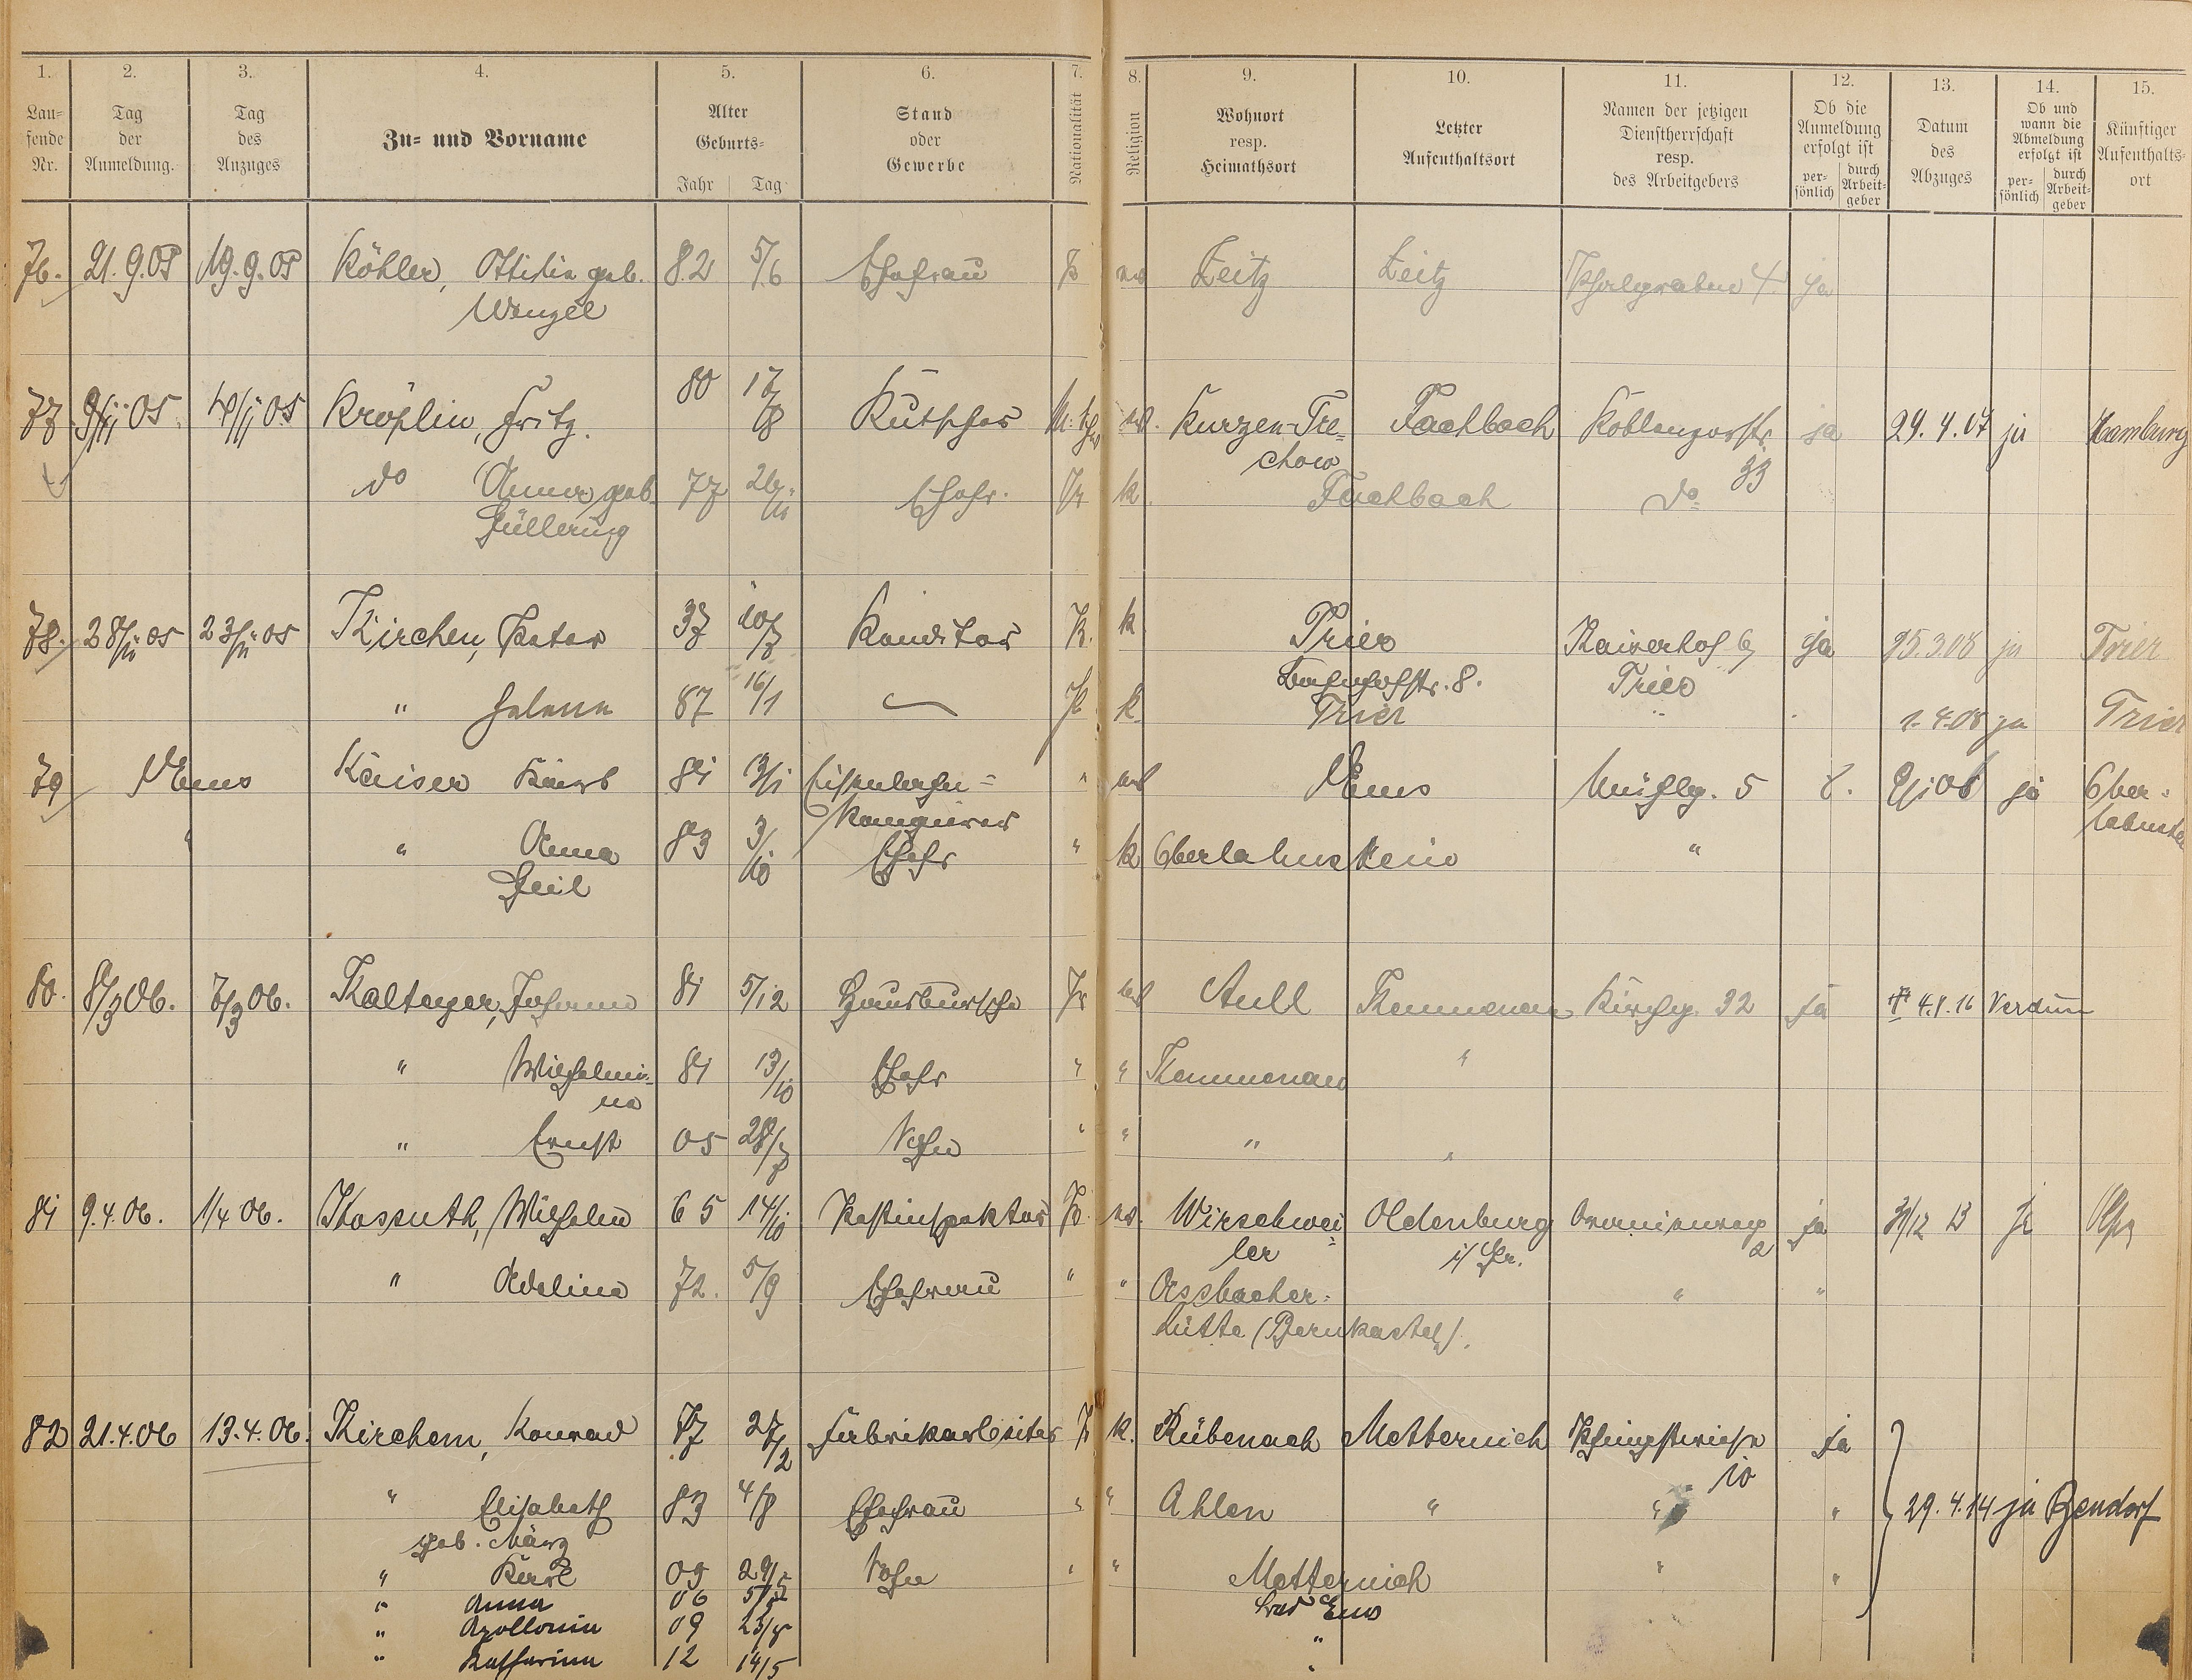 1. 2. 3. 4. 5. 6. 7. 8. 9. 10. 11. 12. 13. 14. 15.
Lau=fende Nr. Tag der Anmeldung. Tag des Anzuges Zu= und Vorname Alter Geburts= Jahr Tag Stand oder Gewerbe Nationalität Religion Wohnort resp. Heimathsort Letzter Aufenthaltsort Namen der jetzigen Dienstherrschaft resp. des Arbeitgebers Ob die Anmeldung erfolgt ist per=sönlich durch Arbeit=geber Datum des Abzuges Ob und wann die Abmeldung erfolgt ist per=sönlich durch Arbeit=geber Künftiger Aufenthalts=ort
76. 21.9.05 19.9.05 Köhler, Ottilie geb. 82 5/6 Ehefrau ev Zeitz Zeitz 4 ja
Wenzel
77 9/11 05 4/11 05 Kröplin, Fritz. 80 17/8 Kutscher ev. Kurzen-Tre= Fachbach Koblenzerstr. ja 29.4.07 ja Hamburg
chow 33
do Anna geb. 77 26/10 Ehefr. Pr k. Fachbach do
Hüllering
78. 28/11 05 23/11 05 Kirchen, Peter 37 10/7 Konditor P. k Trier Kaiserhof 6 ja 25.3.08 ja Trier
Bahnhofstr. 8. Trier
" Helene 87 16/1 k Trier 1.4.08 ja Trier
79 Ems Kaiser Karl 81 13/1 Eisenbahn= " ev Ems 5 2/1 06 ja Ober=
lahnstein
" " Anna 83 3/10 Ehefr " k Oberlahnstein "
Heil
80. 8/3 06. 7/3 06. Kalteyer, Johann 81 5/12 Hausbursche Pr ev Aull Kemmenau Kirchg. 32 ja 4.1.16 Verdun
" Wilhelmi= 81 13/10 Ehefr " " Kemmenau "
ne
" Ernst 05 28/7 Sohn " " " "
81 9.4.06. 1/4 06. Kossuth, Wilhelm 65 14/10 Postinspektor Pr. ev. Wirschwei= Oldenburg Oranienweg ja 31/12 13 ja
ler i/Gr. 2
" Adeline 72. 5/9 Ehefrau " " Assbacher= " "
hütte (Bernkastel).
82 21.4.06 13.4.06. Kirchem, Konrad 77 27/2 Fabrikarbeiter Pr k. Rübenach Metternich Pfingstwiese ja
10
" Elisabeth 83 4/8 Ehefrau " " Ahlen " " " 29.4.14 ja Bendorf
geb. März
" Karl 05 29/5 Sohn " " Metternich " "
" Anna 06 Bad Ems
" Apollonia 09 "
" Katharina 12 14/5 "